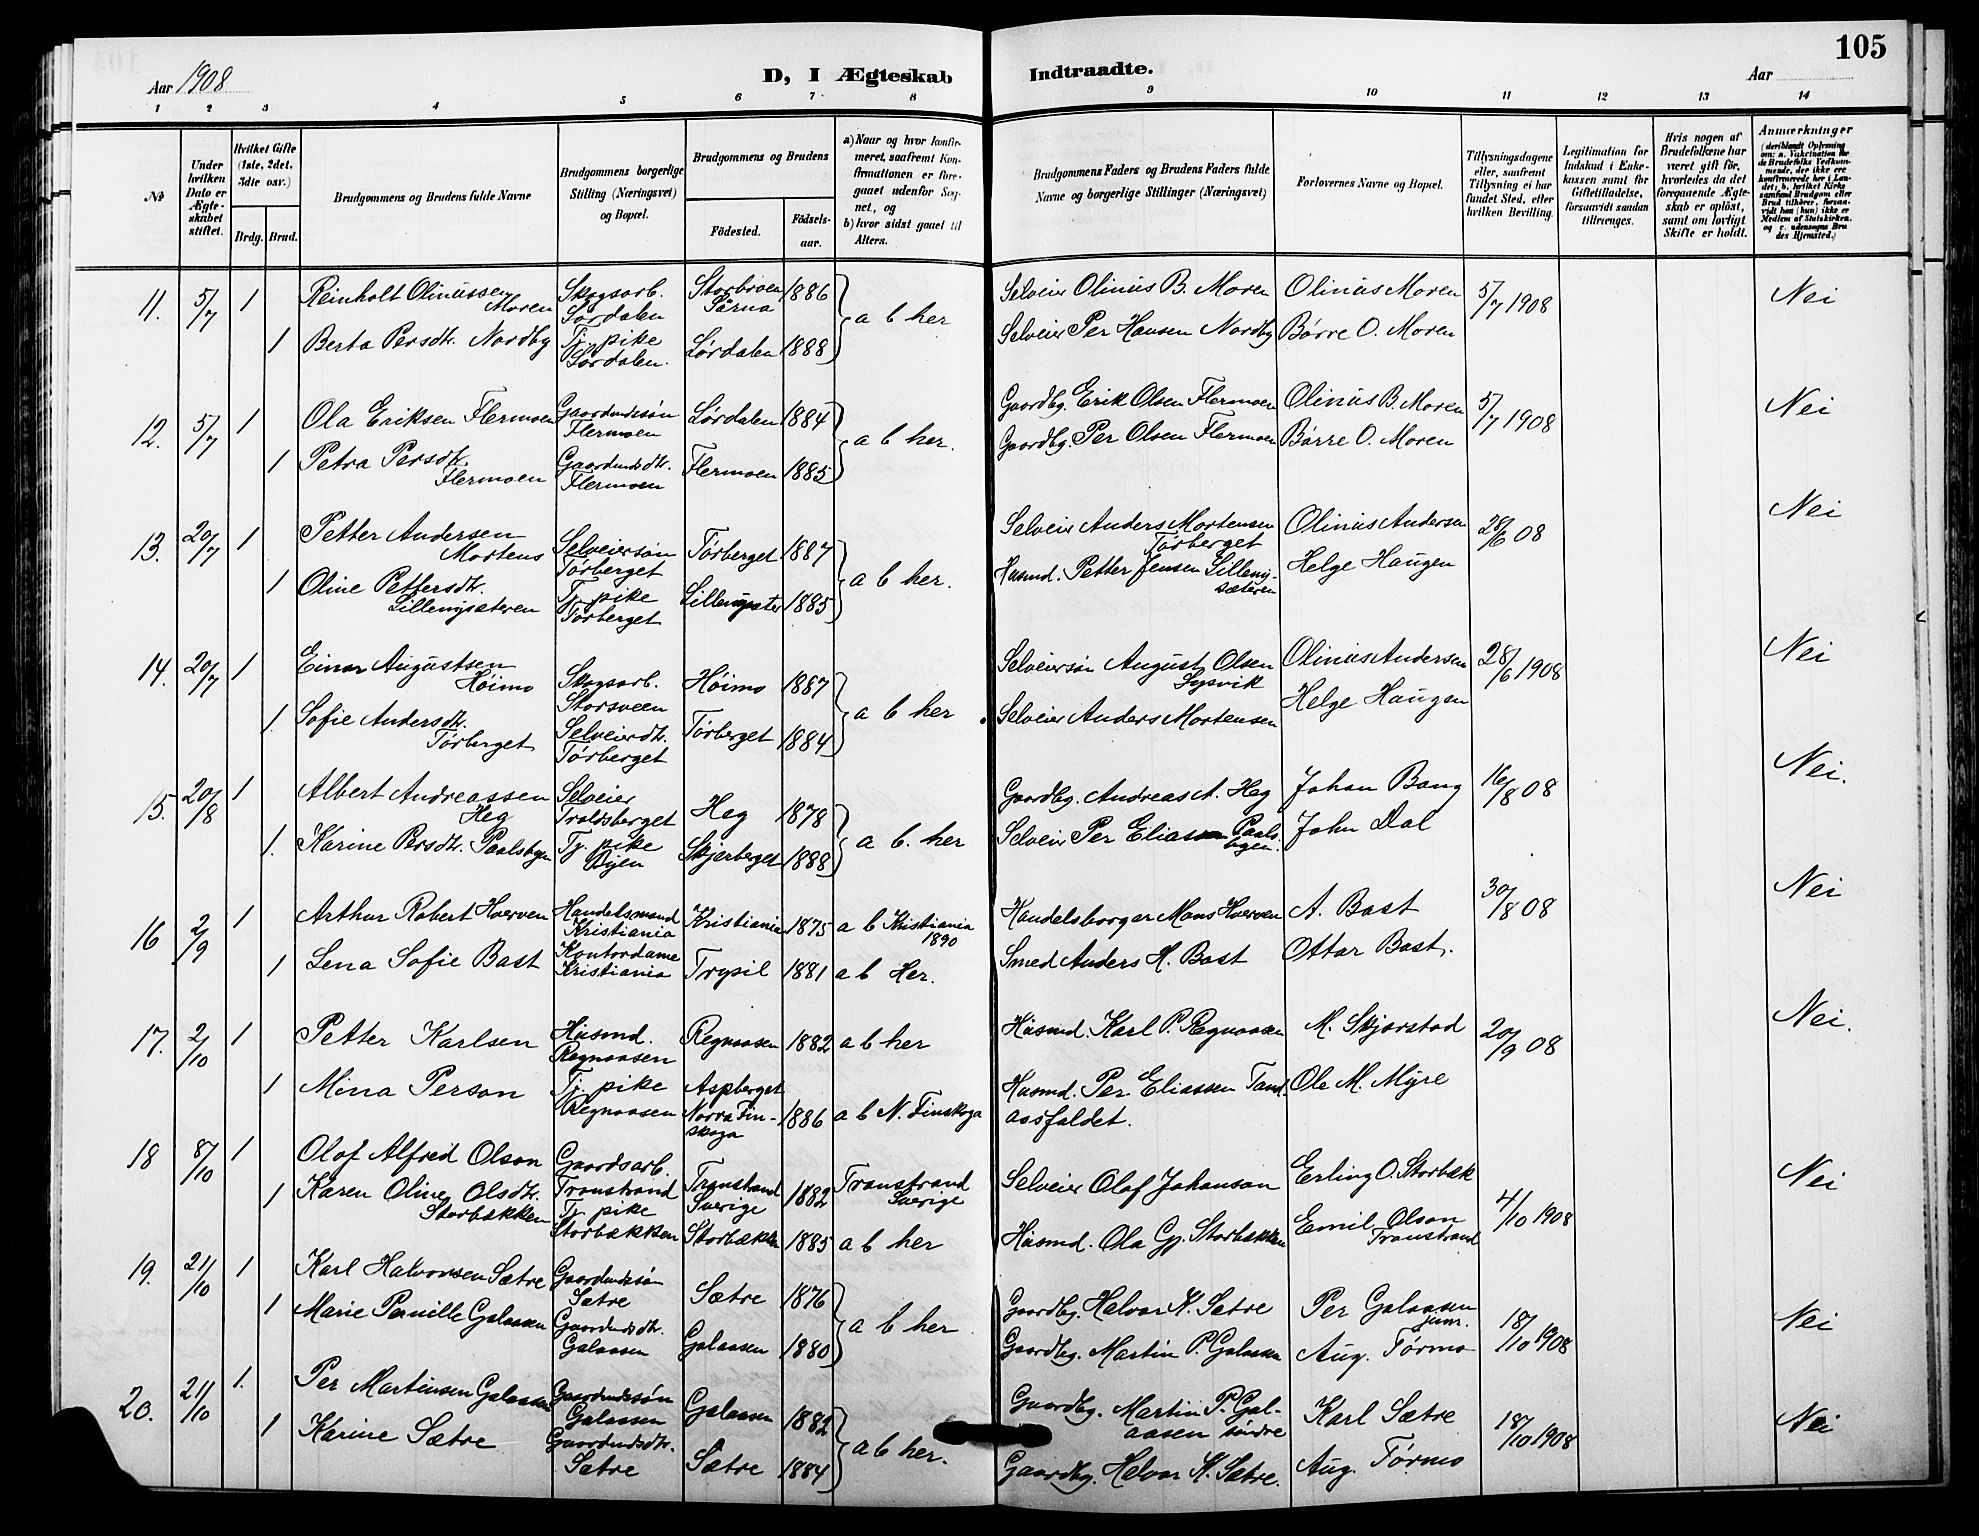 105
Aar 1908
D, I Ægteskab
Indtraadte.
Aar
1 2 3 4 5 6 7 8 9 10 11 12 13 14
№
Under hvilken Dato er Ægteskabet stiftet.
Hvilket Gifte (1ste, 2det, 3die osv.)
Brdg. Brud.
Brudgommens og Brudens fulde Navne
Brudgommens borgerlige Stilling (Næringsvei) og Bopæl.
Brudgommens og Brudens
Födested.
Födselsaar.
a) Naar og hvor konfirmeret, saafremt Konfirmationen er foregaaet udenfor Sognet, og
b) hvor sidst gaaet til Alters.
Brudgommens Faders og Brudens Faders fulde Navne og borgerlige Stillinger (Næringsvei)
Forlovernes Navne og Bopæl.
Tillysningsdagene eller, saafremt Tillysning ei har fundet Sted, efter hvilken Bevilling.
Legitimation for Indskud i Enkekassen samt for Giftetilladelse, forsaavidt saadan tiltrænges.
Hvis nogen af Brudefolkene har været gift før, hvorledes da det foregaaende Ægteskab er opløst, samt om lovligt Skifte er holdt.
Anmærkninger
(deriblandt Oplysning om: a. Vakcination for de Brudefolks Vedkommende, der ikke ere konfirmerede her i Landet; b. hvilket Kirkesamfund Brudgom eller Brud tilhører, forsaavidt han (hun) ikke er Medlem af Statskirken, og c. udensogns Brudes Hjemsted.)
11. 5/7 1 Reinholt Olinussen Moren Skogsarb. Sördalen Storbroen Särna 1886 a b her Selveier Olinus B. Moren Olinus Moren 5/7 1908 Nei
1 Berta Persdtr. Nordby Tj. pike Lördalen 1888 Selveier Per Hansen Nordby Börre O. Moren
12. 5/7 1 Ola Eriksen Flermoen Gaardmdssön Flermoen Lördalen 1884 a b her. Gaardbg. Erik Olsen Flermoen Olinus B. Moren 5/7 1908 Nei
1 Petra Persdtr. Flermoen Gaardmdsdtr. Flermoen Flermoen 1885 Gaardbg. Per Olsen Flermoen Börre O. Moren
13. 20/7 1 Petter Andersen Mortens Selveiersön Törberget Törberget 1887 a b her. Selveier Anders Mortensen Törberget Olinus Andersen 28/6 08 Nei
1 Oline Pettersdtr. Lillenysæteren Tj. pike Törberget 1885 Husmd. Petter Jensen Lillenysæteren Helge Haugen
14. 20/7 1 Einar Augustsen Höimo Skogsarb. Storsveen Höimo 1887 a b her Selveiersön August Olsen Lysvik Olinus Andersen 28/6 1908 Nei
1. Sofie Andersdtr. Törberget Selveierdtr. Törberget Törberget 1884 Selveier Anders Mortensen Helge Haugen
15. 20/8 1 Albert Andreassen Heg Selveier Troldsberget Heg 1878 a b. her Gaardbg. Andreas A. Heg Johan Bang 16/8 08 Nei.
1. Karine Persdtr. Paalsbyen Tj. pike Skjerberget 1888 Selveier Per Eliassen Paalsbyen. John Dal
16 2/9 1 Arthur Robert Hverven Handelsmand Kristiania Kristiania 1875 a b Kristiania 1890 Handelsborger Mons Hverven A. Bast 30/8 08 Nei
1 Lena Sofie Bast Kontordame Kristiania Trysil 1881 a b Her. Smed Anders H. Bast Ottar Bast.
17. 2/10 1 Petter Karlsen Husmd. Regnaasen Regnaasen 1882 a b her Husmd. Karl P. Regnaasen M. Skjærstad 20/9 08 Nei.
1 Mina Person Tj. pike Regnaasen Aspberget Norra Finskoga 1886 a b N. Finskoga Husmd. Per Eliassen Tandaasfaldet. Ole M. Myre
18 8/10 1 Olof Alfred Olson Gaardsarb. Transtrand Transtrand Sverige 1882 Transtrand Sverige Selveier Olof Johanson Erling O. Storbæk 4/10 1908 Nei
1 Karen Oline Olsdtr. Storbækken Tj. pike Storbækken Storbækken 1885 a b her Husmd. Ola Gj. Storbækken Emil Olson Transtrand
19. 21/10 1 Karl Halvorsen Sætre Gaardmdssön Sætre Sætre 1876 a b her Gaardbg. Halvor K. Sætre Per Galaasen junr. 18/10 1908 Nei
1 Marie Pernille Galaasen Gaardmdsdtr. Galaasen Galaasen 1880 Gaardbg. Martin P. Galaasen Aug. Törmo
20. 21/10 1. Per Martinsen Galaasen Gaardmdssön Galaasen Galaasen 1882 a b her. Gaardbg. Martin P. Galaasen söndre Karl Sætre 18/10 1908 Nei
1 Karine Sætre Gaardmdsdtr. Sætre Sætre 1884 Gaardbg. Halvor K. Sætre. Aug. Törmo